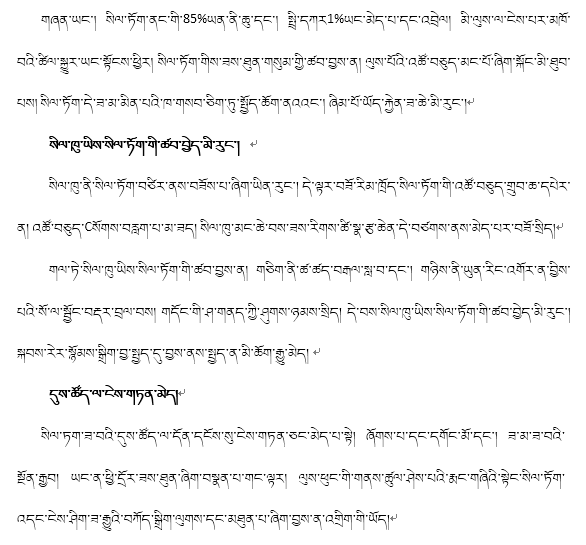 གཞན་ཡང་། སིལ་ཏོག་ནང་གི་85%ཡན་ནི་ཆུ་དང་། སྤྲི་དཀར1%ཡང་མེད་པ་དང་འབྲེལ། མི་ལུས་ལ་ངེས་པར་མཁོ་
བའི་ཚིལ་སྐྱུར་ཡང་སྟོངས་ཕྱིར། སིལ་ཏོག་གིས་ཟས་ཐུན་གསུམ་གྱི་ཚབ་བྱས་ན། ལུས་པོའི་འཚོ་བཅུད་མང་པོ་ཞིག་སྐོང་མི་ཐུབ་
པས། སིལ་ཏོག་དེ་ཟ་མ་མིན་པའི་ཁ་གསབ་ཅིག་ཏུ་སྤྱོད་ཆོག་ནའང་། ཞིམ་པོ་ཡོད་རྐྱེན་ཟ་ཆེ་མི་རུང་།
སིལ་ཁུ་ཡིས་སིལ་ཏོག་གི་ཚབ་བྱེད་མི་རུང་།
སིལ་ཁུ་ནི་སིལ་ཏོག་བཙིར་ནས་བཟོས་པ་ཞིག་ཡིན་རུང་། དེ་ལྟར་བཟོ་རིམ་ཁྲོད་སིལ་ཏོག་གི་འཚོ་བཅུད་གྲུབ་ཆ་དཔེར་
ན། འཚོ་བཅུད་Cསོགས་བརླག་པ་མ་ཟད། སིལ་ཁུ་མང་ཆེ་བས་ཟས་རིགས་ཚི་སྣ་རྩ་ཆེན་དེ་བཙགས་ནས་མེད་པར་བཟོ་སྲིད།
གལ་ཏེ་སིལ་ཁུ་ཡིས་སིལ་ཏོག་གི་ཚབ་བྱས་ན། གཅིག་ནི་ཚ་ཚད་བརྒལ་སླ་བ་དང་། གཉིས་ནི་ཡུན་རིང་འགོར་ན་བྱིས་
པའི་སོ་ལ་སྦྱོང་བརྡར་བྲལ་བས། གདོང་གི་ཤ་གནད་ཀྱི་ཤུགས་ཉམས་སྲིད། དེ་བས་སིལ་ཁུ་ཡིས་སིལ་ཏོག་གི་ཚབ་བྱེད་མི་རུང་།
སྐབས་རེར་སྙོམས་སྒྲིག་བྱ་སྤྱད་དུ་བྱས་ནས་སྤྱད་ན་མི་ཆོག་རྒྱུ་མེད།
དུས་ཚོད་ལ་ངེས་གཏན་མེད།
སིལ་ཏག་ཟ་བའི་དུས་ཚོད་ལ་དོན་དངོས་སུ་ངེས་གཏན་ཅང་མེད་པ་སྟེ། ཞོགས་པ་དང་དགོང་མོ་དང་། ཟ་མ་ཟ་བའི་
སྔོན་རྒྱབ། ཡང་ན་ཕྱི་དྲོར་ཟས་ཐུན་ཞིག་བསྣན་པ་གང་ལྟར། ལུས་ཕུང་གི་གནས་ཚུལ་ཤེས་པའི་རྨང་གཞིའི་སྟེང་སིལ་ཏོག་
འདང་ངེས་ཤིག་ཟ་རྒྱུའི་བཀོད་སྒྲིག་ལུགས་དང་མཐུན་པ་ཞིག་བྱས་ན་འགྲིག་གི་ཡོད།